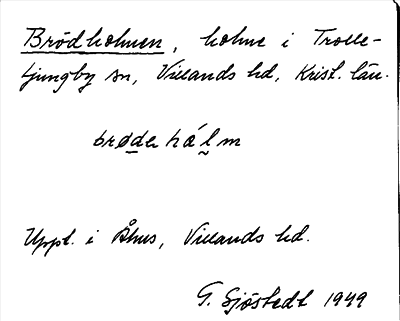 Brödholmen, holme i Trolle-
Ljungby sn, Villands hd, Krist. län.
brødehálm
Uppt. i Åhus, Villands hd.
G. Sjöstedt 1949